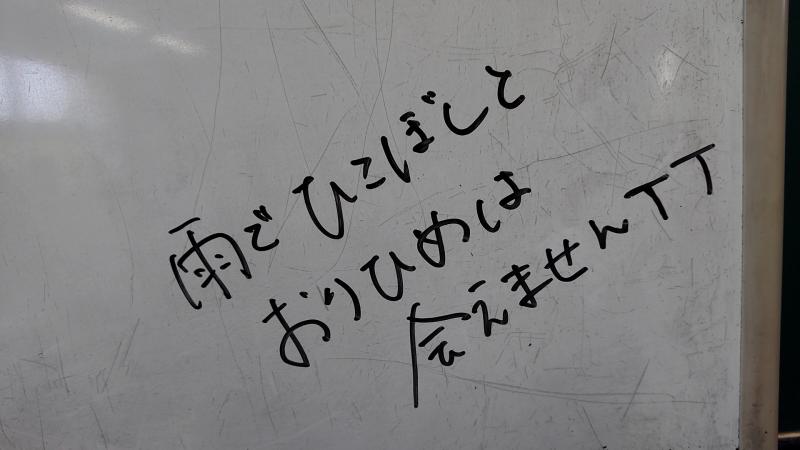 雨でひこぼしと
おりひめは
会えませんTT